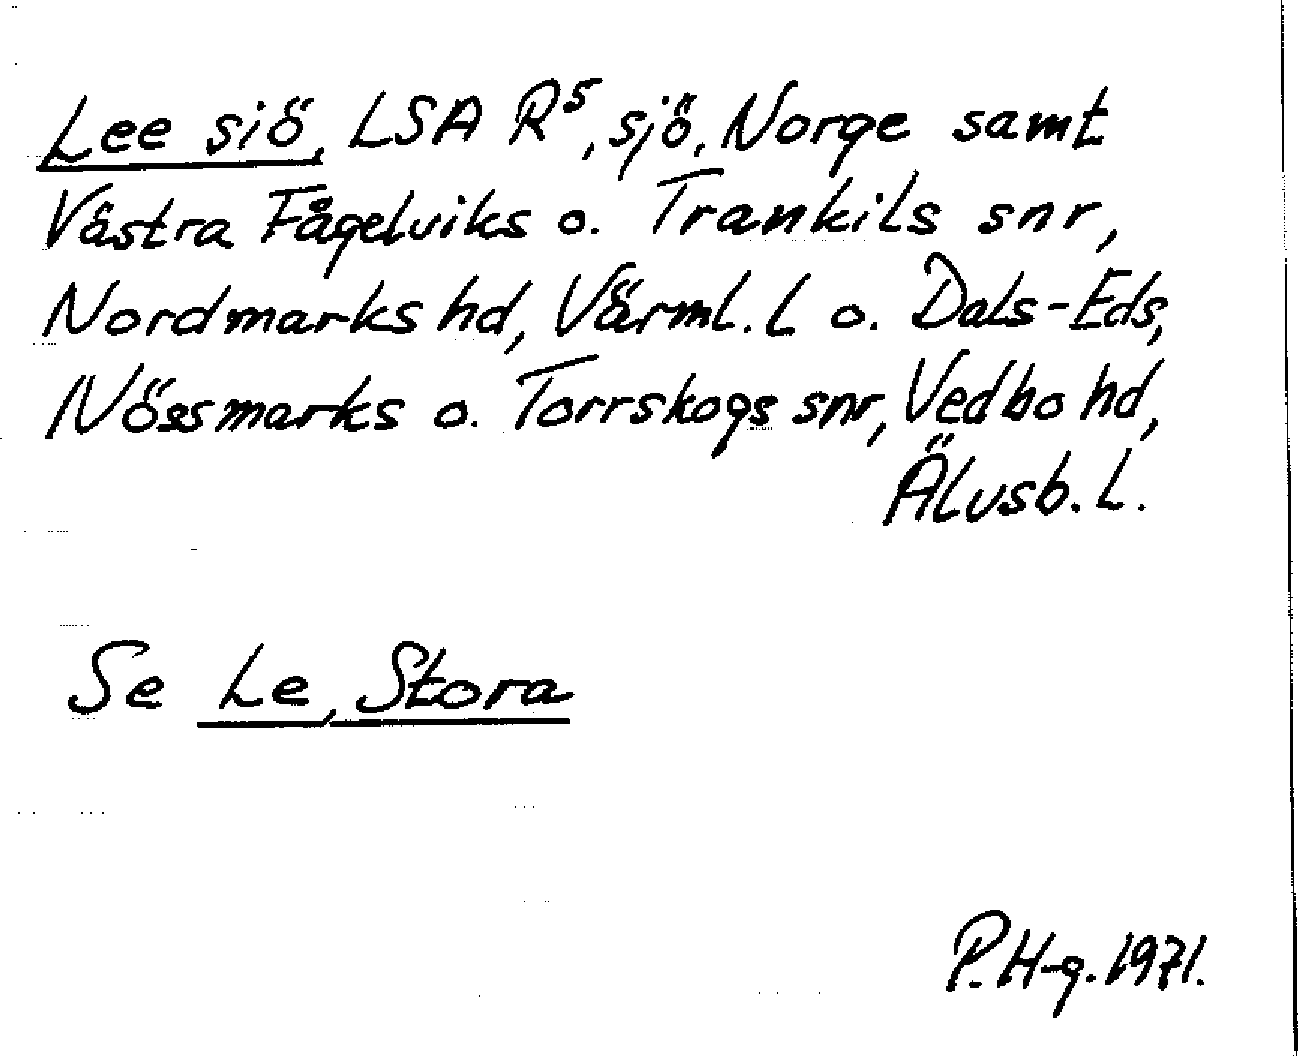 Lee siö, LSA R⁵, sjö, Norge samt
Västra Fågelviks o. Trankils snr,
Nordmarks hd, Värml. L o. Dals-Eds,
Nössmarks o. Torrskogs snr, Vedbo hd,
Älvsb. L.
Se Le, Stora
P. H-g. 1971.